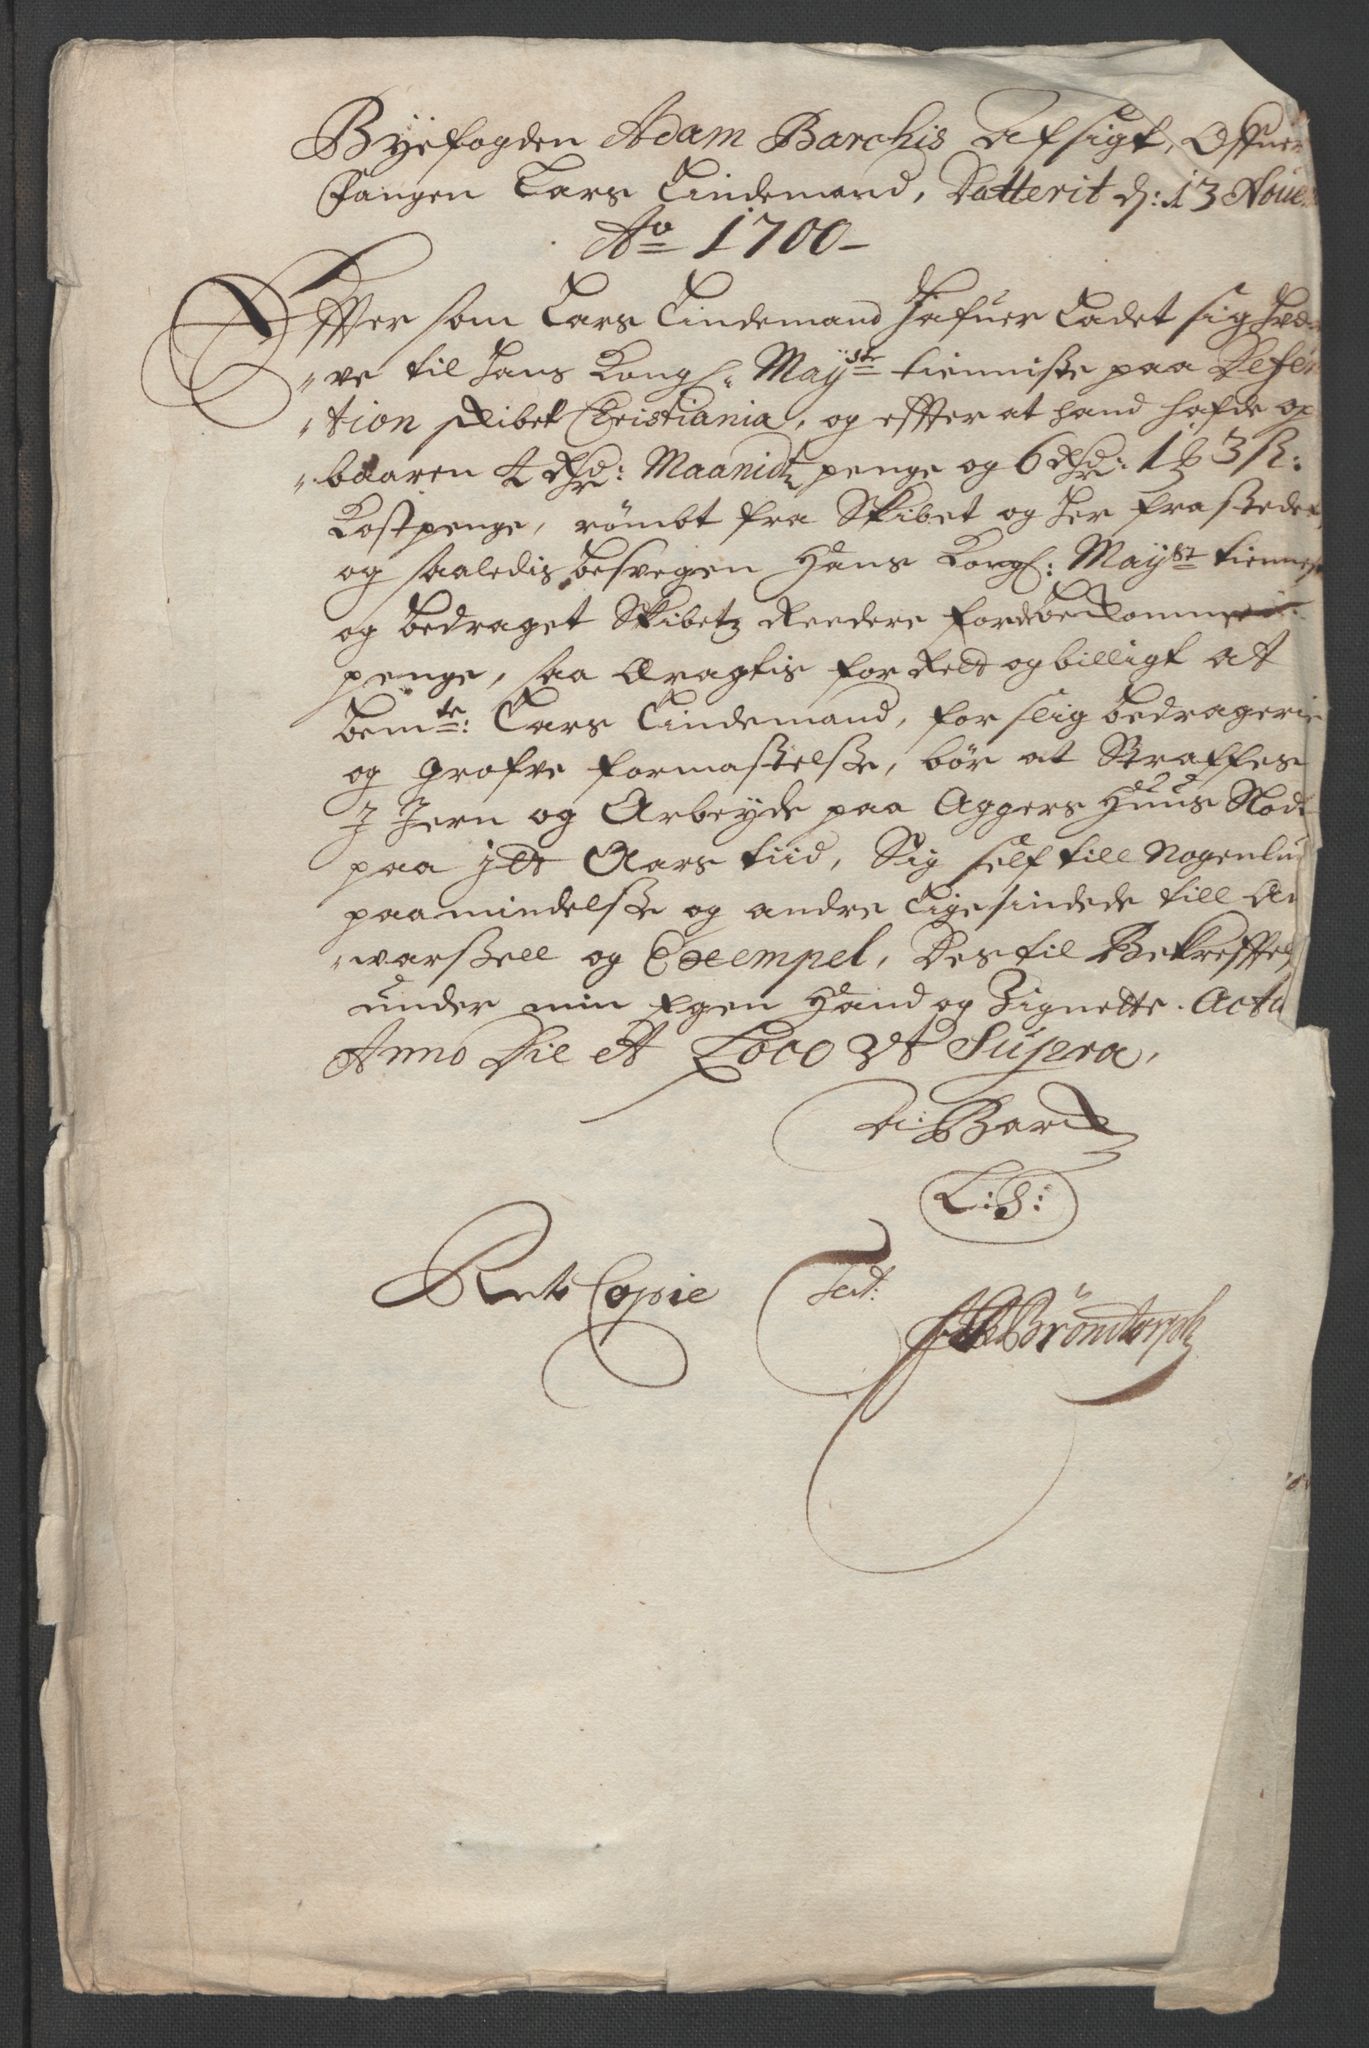 Byefogden Adam Barchis Afsigt, Offuer
Fangen Lars Lindemand, Datterit d: 13 Noue
Ao 1700
Effter som Lars Lindemand hafuer Ladet sig
ve til hans Kongl: Mayst tienniste paa Defen
tion skibet Christiania, og effter at hand hafde op
baaren 4 Rdr: Maanidtz penge og 6 Rdr: 1 3 ß:
Kostpenge, römbt fra Skibet og her fra stedet
og saaledis besvegen Hans Kongl: Mayst tiennist
og bedraget Skibetz Reedere for de bekomme
penge, saa Eragtis for Rett og billigt At
bemte: Lars Lindemand, for slig bedragerie
og grofve formastelsse, bör at Straffes
J Jern og Arbeyde paa Aggers Huus Slodt
paa it Aars tiid, Sig self till Nogenlu
paamindelsse og andre Ligesindede till Ad
varssell og Exempel, Des til Bekrefftels
under min Egen Haand og Zignette. Actu
Anno Die et Loco Vt Supra,
A: Barck
L: S:
Rett Copie Test:
Bröndorph